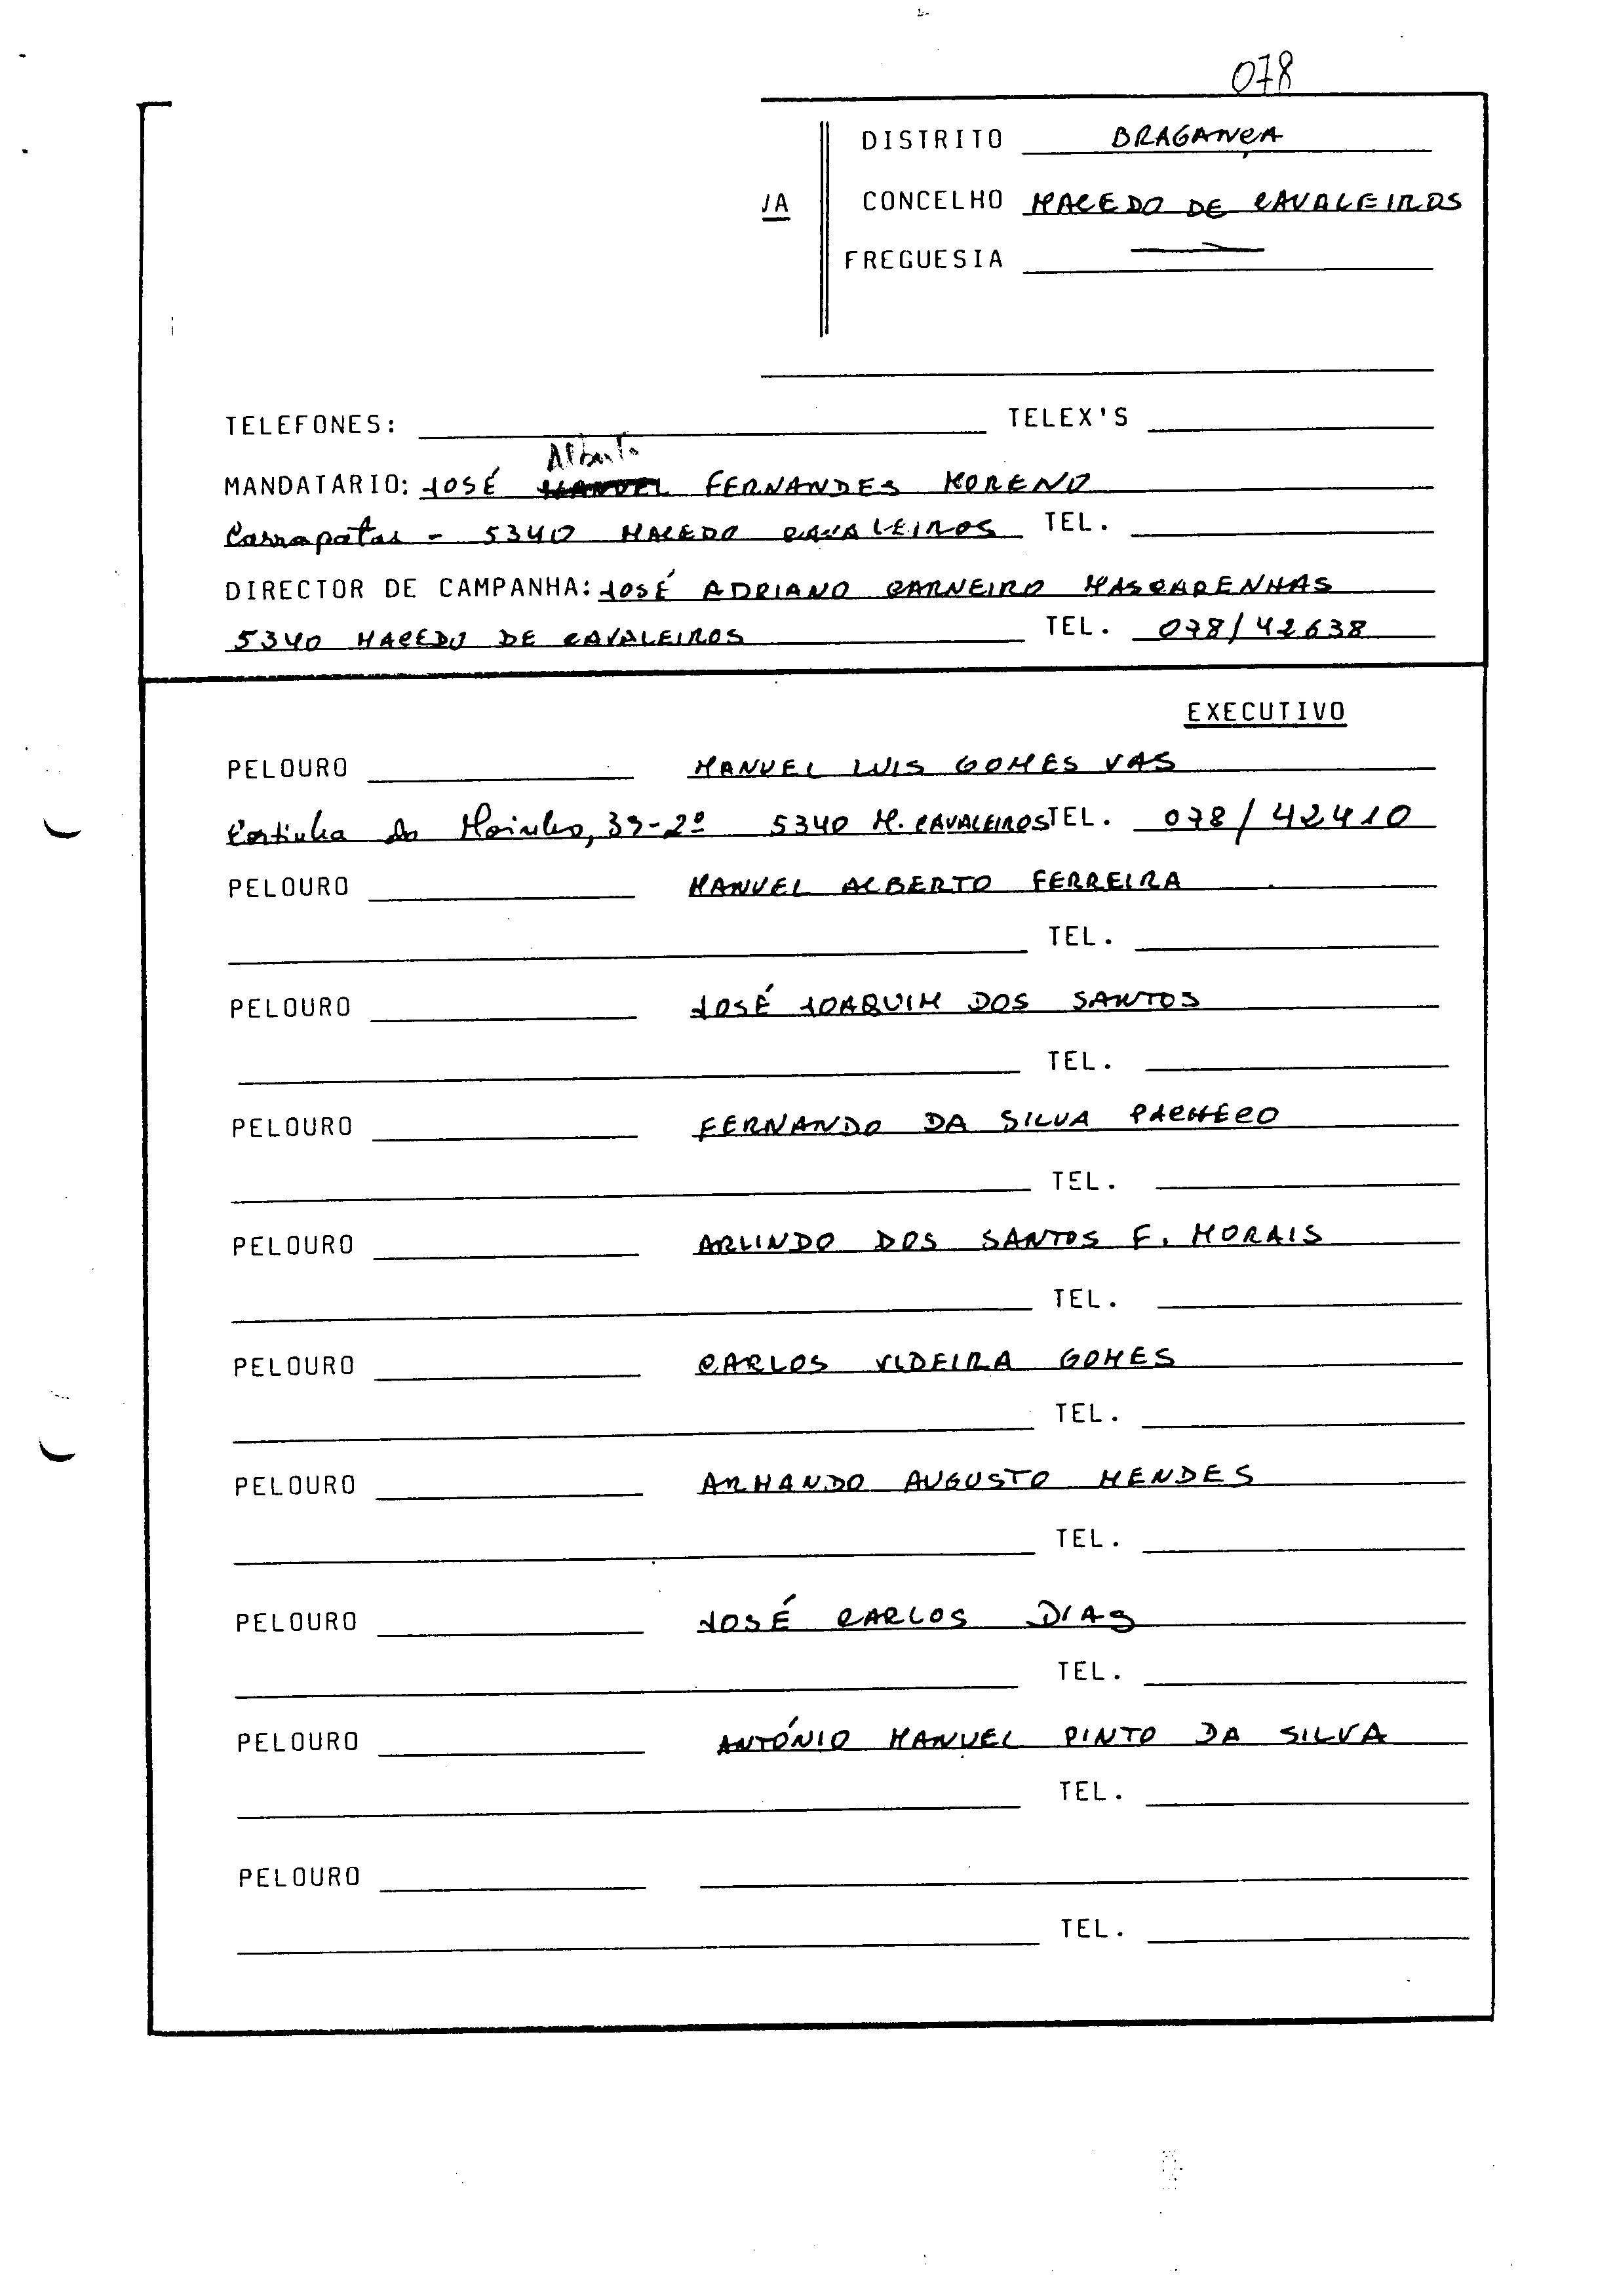 078
DISTRITO BRAGANÇA
/A CONCELHO MACEDO DE CAVALEIROS
FREGUESIA —
TELEFONES: TELEX'S
Alberto
MANDATARIO: JOSÉ MANUEL FERNANDES MORENO
Carrapatas - 5340 MACEDO CAVALEIROS TEL.
DIRECTOR DE CAMPANHA: JOSÉ ADRIANO CARNEIRO MASCARENHAS
5340 MACEDO DE CAVALEIROS TEL. 078/42638
EXECUTIVO
PELOURO MANUEL LUIS GOMES VAS
Cortinha do Moinho, 39-2º 5340 M. CAVALEIROS TEL. 078/42410
PELOURO MANUEL ALBERTO FERREIRA
TEL.
PELOURO JOSÉ JOAQUIM DOS SANTOS
TEL.
PELOURO FERNANDO DA SILVA PACHECO
TEL.
PELOURO ARLINDO DOS SANTOS F. MORAIS
TEL.
PELOURO CARLOS VIDEIRA GOMES
TEL.
PELOURO ARMANDO AUGUSTO MENDES
TEL.
PELOURO JOSÉ CARLOS DIAS
TEL.
PELOURO ANTÓNIO MANUEL PINTO DA SILVA
TEL.
PELOURO
TEL.